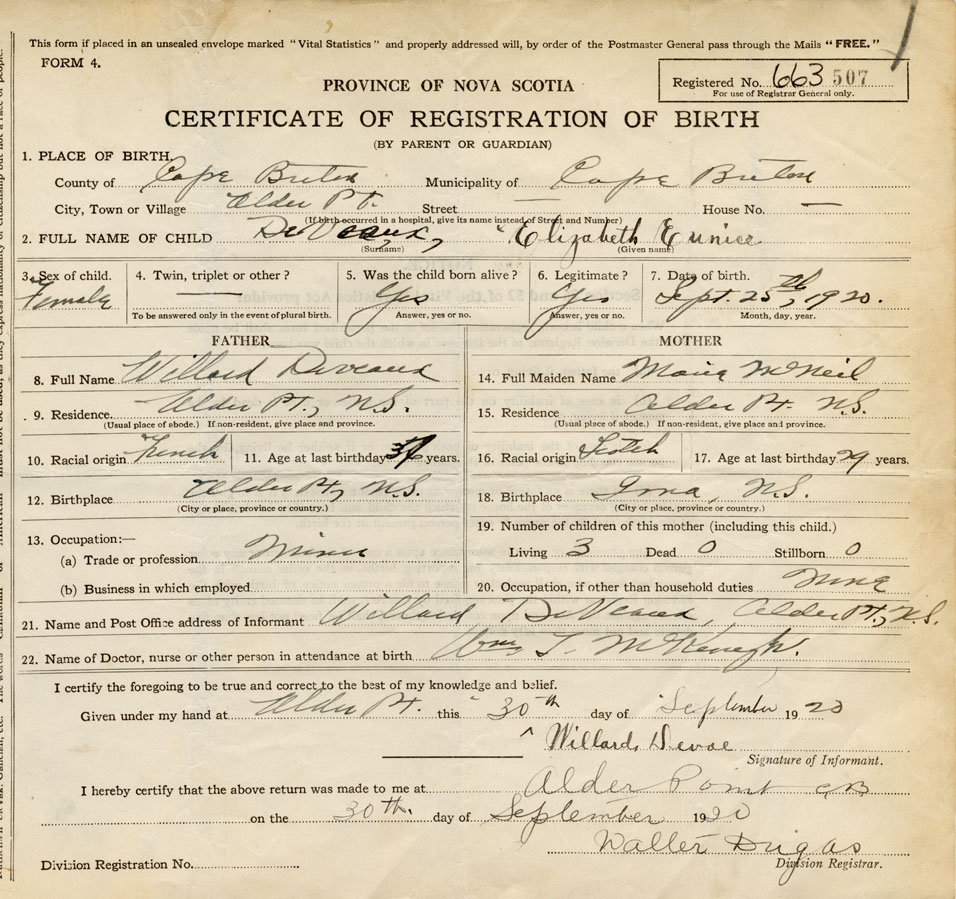 This form if placed in an unsealed envelope marked "Vital Statistics" and properly addressed will, by order of the Postmaster General pass through the Mails "FREE."
FORM 4.
Registered No. 663 507
For use of Registrar General only.
PROVINCE OF NOVA SCOTIA
CERTIFICATE OF REGISTRATION OF BIRTH
(BY PARENT OR GUARDIAN)
1. PLACE OF BIRTH.
County of Cape Breton Municipality of Cape Breton
City, Town or Village Alder Pt. Street — House No. —
(If birth occurred in a hospital, give its name instead of Street and Number)
2. FULL NAME OF CHILD DeVeaux, Elizabeth Eunice
(Surname) (Given name)
3. Sex of child. 4. Twin, triplet or other? 5. Was the child born alive? 6. Legitimate? 7. Date of birth.
Female — Yes Yes Sept. 25th, 1920.
To be answered only in the event of plural birth. Answer, yes or no. Answer, yes or no. Month, day, year.
FATHER
8. Full Name Willard Deveaux
9. Residence. Alder Pt., N.S.
(Usual place of abode.) If non-resident, give place and province.
10. Racial origin French 11. Age at last birthday years.
12. Birthplace Alder Pt, N.S.
(City or place, province or country.)
13. Occupation:—
(a) Trade or profession Miner
(b) Business in which employed
MOTHER
14. Full Maiden Name McNeil
15. Residence Alder Pt. N.S.
(Usual place of abode.) If non-resident, give place and province.
16. Racial origin Scotch 17. Age at last birthday 29 years.
18. Birthplace Iona, N.S.
(City or place, province or country.)
19. Number of children of this mother (including this child.)
Living 3 Dead 0 Stillborn 0
20. Occupation, if other than household duties None
21. Name and Post Office address of Informant Willard DeVeaux, Alder Pt., N.S.
22. Name of Doctor, nurse or other person in attendance at birth Wm
I certify the foregoing to be true and correct to the best of my knowledge and belief.
Given under my hand at Alder Pt. this 30th day of September 1920
Willard Devoe
Signature of Informant.
I hereby certify that the above return was made to me at Alder Point CB
on the 30th. day of September 1920
Walter
Division Registrar.
Division Registration No.